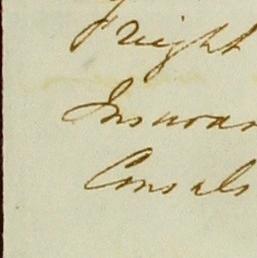 Freight
Insuran
Consuls